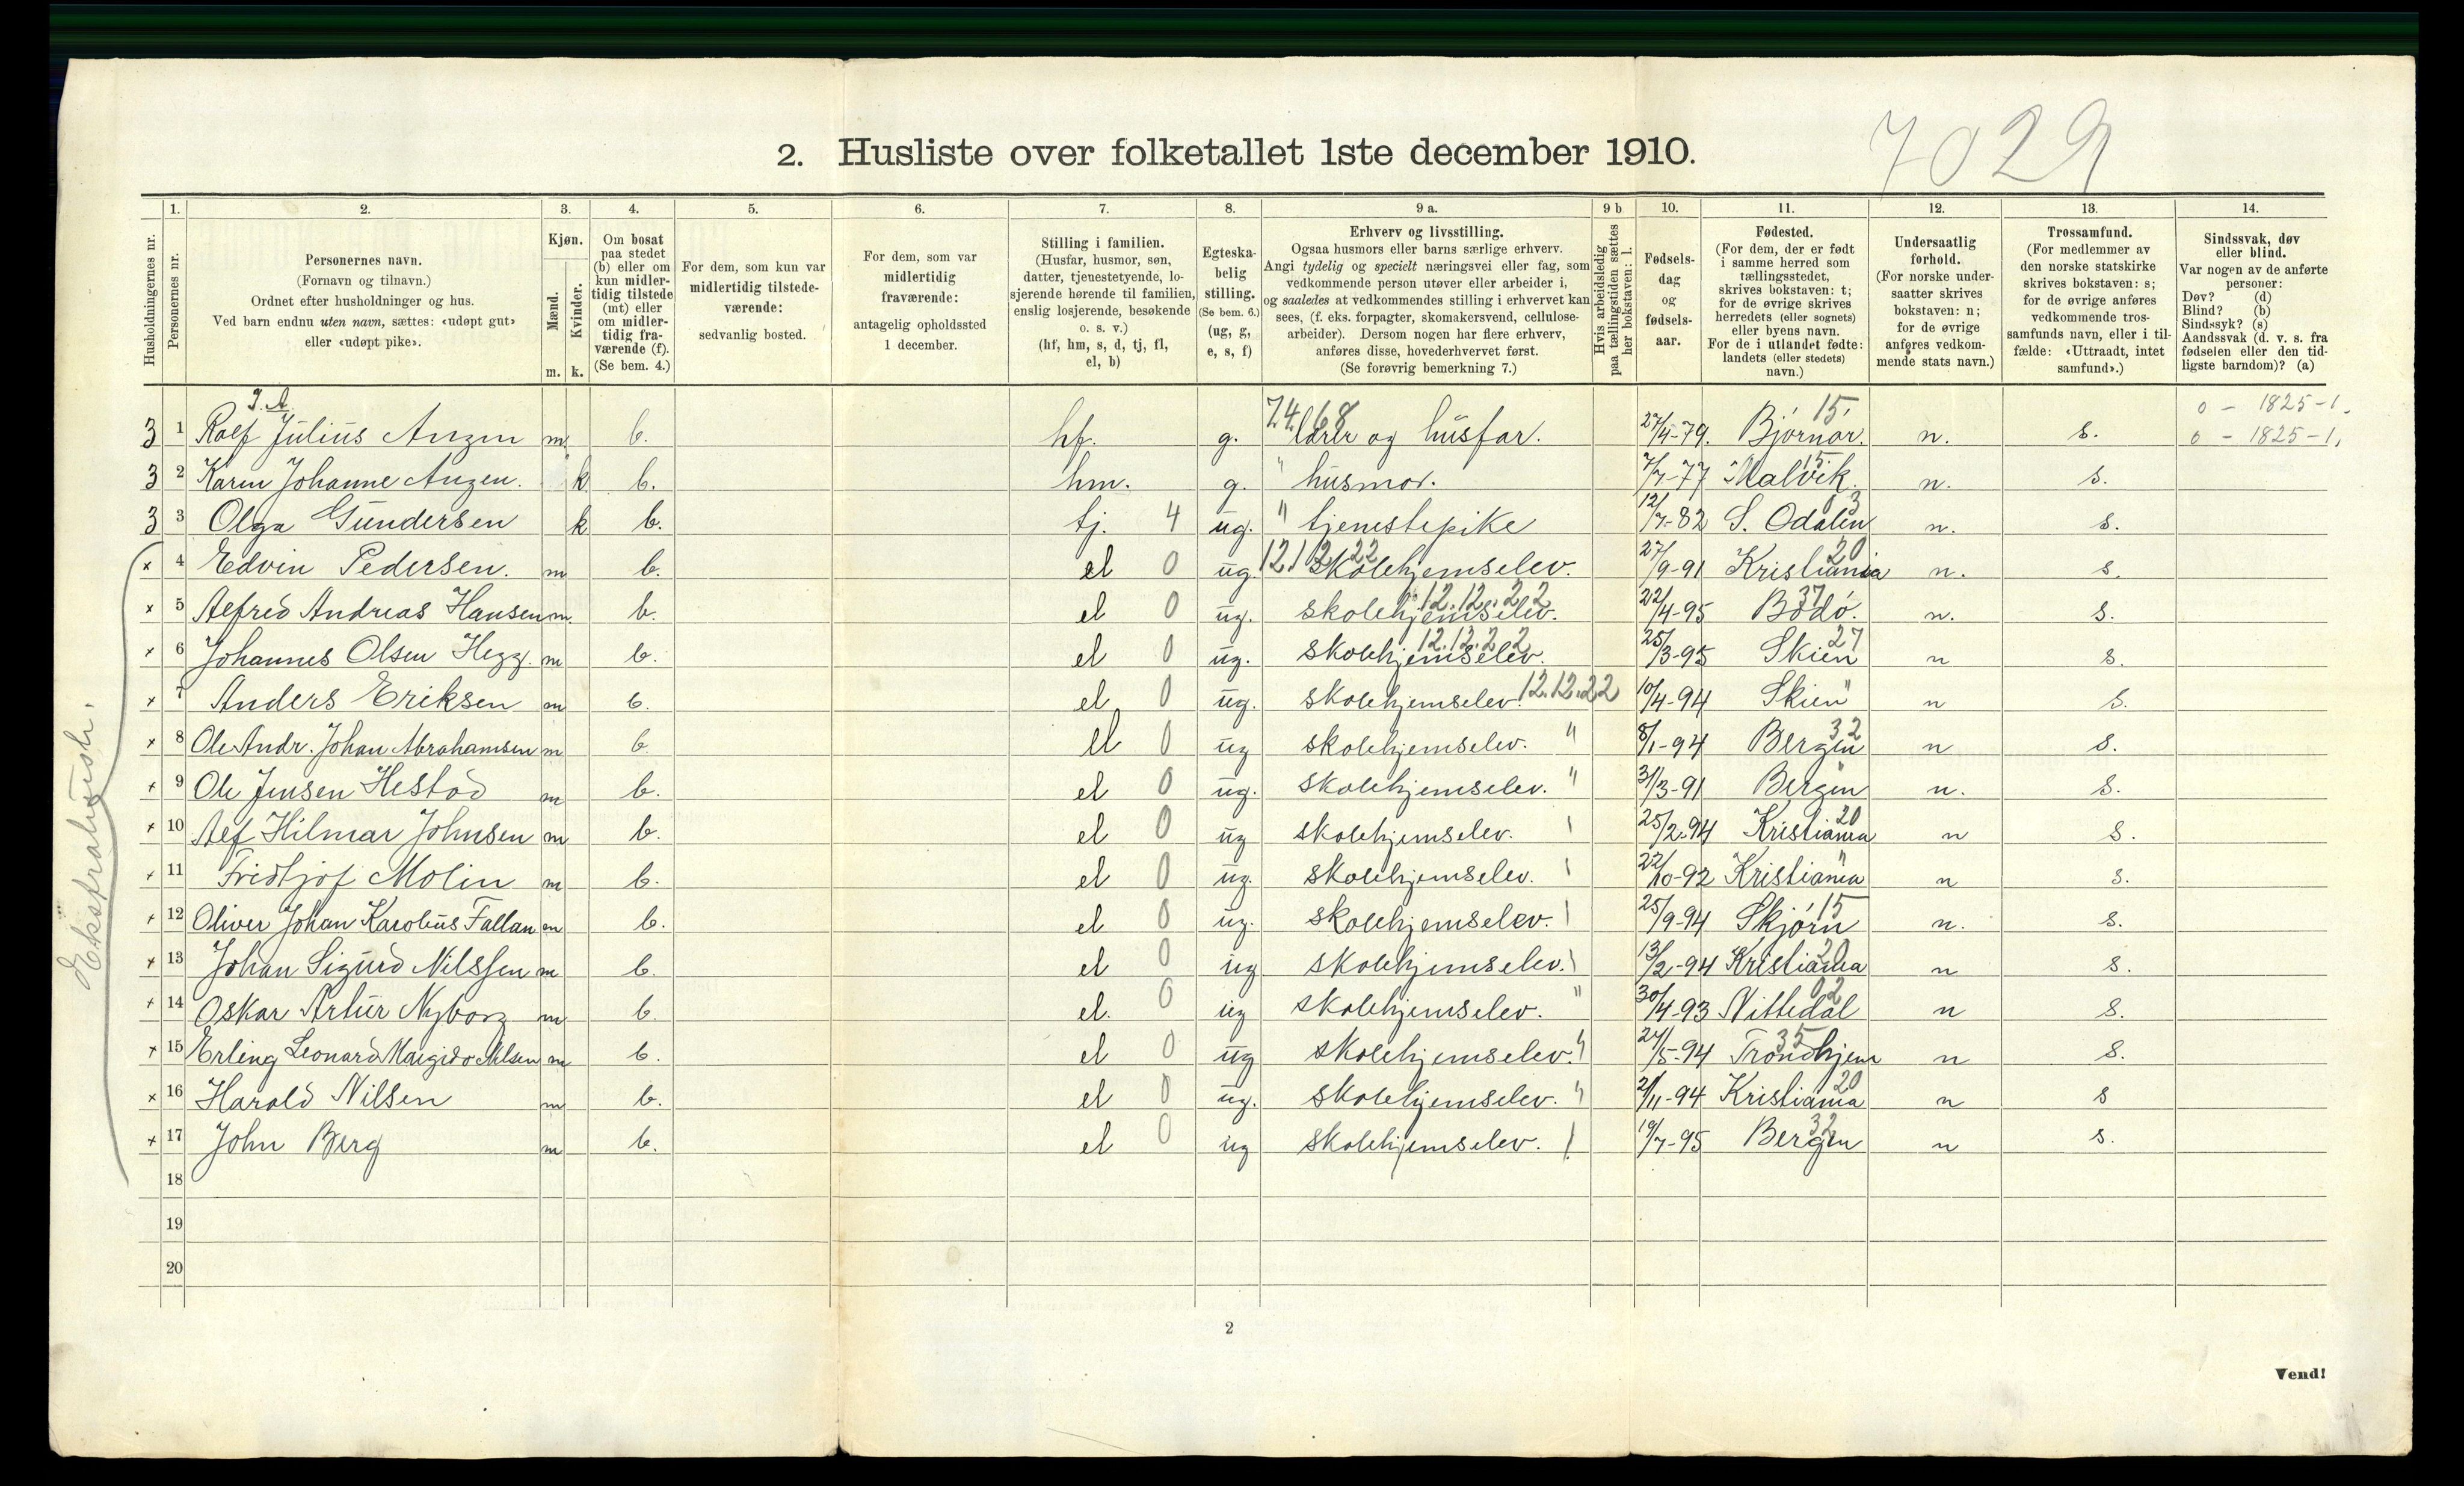 7029
2. Husliste over folketallet 1ste december 1910.
1. 2. 3. 4. 5. 6. 7. 8. 9 a. 9 b 10. 11. 12. 13. 14.
Husholdningernes nr.
Personernes nr.
Personernes navn.
(Fornavn og tilnavn.)
Ordnet efter husholdninger og hus.
Ved barn endnu uten navn, sættes: «udøpt gut»
eller «udøpt pike».
Kjøn.
Mænd.
Kvinder.
m. k.
Om bosat
paa stedet
(b) eller om
kun midler-
tidig tilstede
(mt) eller
om midler-
tidig fra-
værende (f).
(Se bem. 4.)
For dem, som kun var
midlertidig tilstede-
værende:
sedvanlig bosted.
For dem, som var
midlertidig
fraværende:
antagelig opholdssted
1 december.
Stilling i familien.
(Husfar, husmor, søn,
datter, tjenestetyende, lo-
sjerende hørende til familien,
enslig losjerende, besøkende
o. s. v.)
(hf, hm, s, d, tj, fl,
el, b)
Egteska-
belig
stilling.
(Se bem. 6.)
(ug, g,
e, s, f)
Erhverv og livsstilling.
Ogsaa husmors eller barns særlige erhverv.
Angi tydelig og specielt næringsvei eller fag, som
vedkommende person utøver eller arbeider i,
og saaledes at vedkommendes stilling i erhvervet kan
sees, (f. eks. forpagter, skomakersvend, cellulose-
arbeider). Dersom nogen har flere erhverv,
anføres disse, hovederhvervet først.
(Se forøvrig bemerkning 7.)
Hvis arbeidsledig
paa tællingstiden sættes
her bokstaven: l.
Fødsels-
dag
og
fødsels-
aar.
Fødested.
(For dem, der er født
i samme herred som
tællingsstedet,
skrives bokstaven: t;
for de øvrige skrives
herredets (eller sognets)
eller byens navn.
For de i utlandet fødte:
landets (eller stedets)
navn.)
Undersaatlig
forhold.
(For norske under-
saatter skrives
bokstaven: n;
for de øvrige
anføres vedkom-
mende stats navn.)
Trossamfund.
(For medlemmer av
den norske statskirke
skrives bokstaven: s;
for de øvrige anføres
vedkommende tros-
samfunds navn, eller i til-
fælde: «Uttraadt, intet
samfund».)
Sindssvak, døv
eller blind.
Var nogen av de anførte
personer:
Døv? (d)
Blind? (b)
Sindssyk? (s)
Aandssvak (d. v. s. fra
fødselen eller den tid-
ligste barndom)? (a)
J. A. 74.68 15 0 - 1825-1.
3 1 Rolf Julius Anzen m. b. hf. g. lærer og husfar. 27/4-79. Bjørnør. n. s. 0 - 1825-1.
3 2 Karen Johanne Anzen. k b. hm. g. " husmor. 7/7-77 Malvik. 15 n. s.
3 3 Olga Gundersen k b. tj. 4 ug. " tjenestepike 12/7-82 S. Odalen 03 n. s.
x 4 Edvin Pedersen. m b. el 0 ug. 12.12.22 skolehjemselev. 27/9-91 Kristiania 20 n. s.
x 5 Alfred Andreas Hansen m. b. el 0 ug. skolehjemselev. 12.12.22 22/4-95 Bodø. 37 n. s.
x 6 Johannes Olsen Hegg. m b. el 0 ug. skolehjemselev. 12.12.22 25/3-95 Skien 27 n s.
x 7 Anders Eriksen m b. el 0 ug. skolehjemselev. 12.12.22 10/4-94 Skien " n s.
x 8 Ole Andr. Johan Abrahamsen m b el 0 ug skolehjemselev. " 8/1-94 Bergen 32 n s.
x 9 Ole Jensen Hestad m b. el 0 ug. skolehjemselev. " 31/3-91 Bergen n. s.
x 10 Alf Hilmar Johnsen m b. el 0 ug skolehjemselev. 25/2-94 Kristiania 20 n s.
x 11 Fridtjof Molin m b. el 0 ug. skolehjemselev. 22/10-92 Kristiania " n s.
x 12 Oliver Johan Karolius Fallan m b. el 0 ug. skolehjemselev. 25/9-94 Skjørn 15 n. s.
x 13 Johan Sigurd Nilssen m b. el 0 ug skolehjemselev. 13/2-94 Kristiania 20 n s.
x 14 Oskar Artur Nyborg m b. el. 0 ug skolehjemselev. " 30/4-93 Nittedal 02 n s.
x 15 Erling Leonard Margido Nilsen m b. el 0 ug skolehjemselev. " 24/5-94 Trondhjem 35 n s.
x 16 Harald Nilsen m b. el 0 ug. skolehjemselev. " 2/11-94 Kristiania 20 n s
x 17 John Berg m b. el 0 ug skolehjemselev. 19/7-95 Bergen 32 n s.
18
19
20
Ekstrahush.
2
Vend!